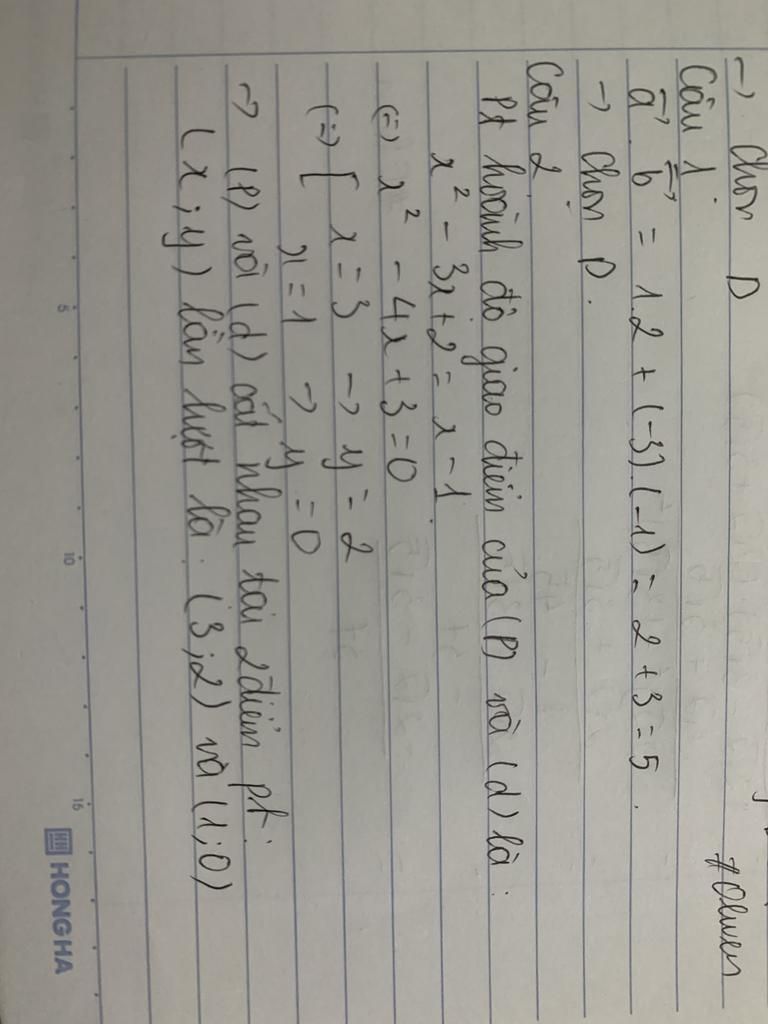 → Chọn D
#Olwen
Câu 1.
a⃗ . b⃗ = 1.2 + (-3).(-1) = 2 + 3 = 5.
→ Chọn D.
Câu 2.
Pt hoành độ giao điểm của (P) và (d) là :
x² - 3x + 2 = x - 1.
(=) x² - 4x + 3 = 0
(=) [ x = 3 → y = 2
x = 1 → y = 0
→ (P) và (d) cắt nhau tại 2 điểm pt.
(x ; y) lần lượt là. (3 ; 2) và (1 ; 0)
5 10 15
HONG HA